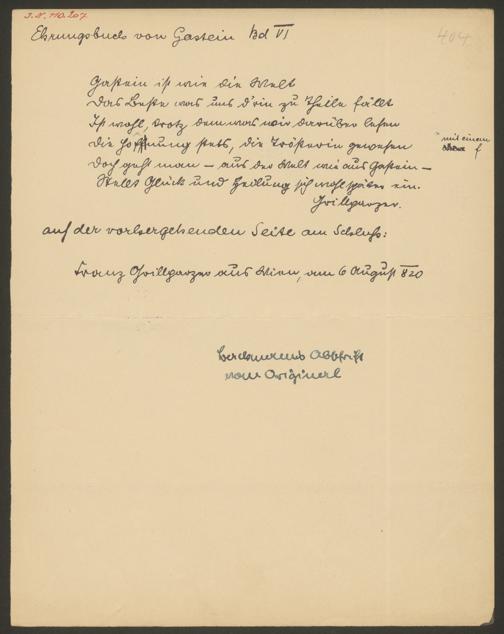 I.N. 110.207
404
Ehrungsbuch von Gastein Bd VI
Gastein ist wie die Welt
Das Beste was uns d'rin zu Theile fällt
Ist wohl, trotz dem was wir darüber lesen
Die Hoffnung stets, die Trösterin gewesen
" mit einem f
Doch geht man – aus der Welt wie aus Gastein –
Stellt Glück und Heilung sich wohl später ein.
Grillparzer.
auf der vorhergehenden Seite am Schluß:
Franz Grillparzer aus Wien, am 6 August 820
Abschrift
vom Original